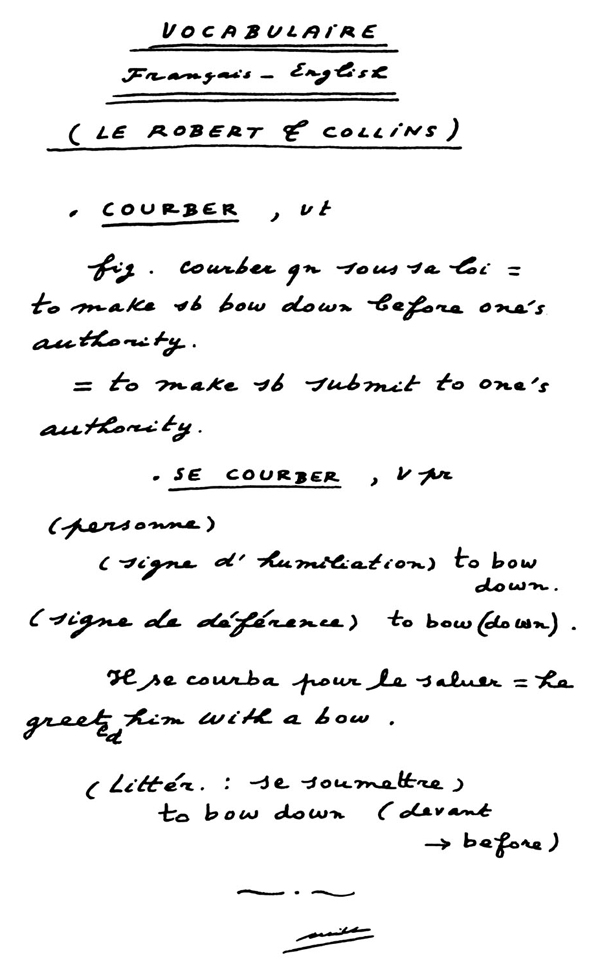 VOCABULAIRE
Français - English
(LE ROBERT & COLLINS)
. COURBER , vt
fig. courber qn sous sa loi =
to make sb bow down before one's
authority.
= to make sb submit to one's
authority.
. SE COURBER , v pr
(personne)
(signe d'humiliation) to bow
down.
(signe de déférence) to bow (down).
Il se courba pour le saluer = he
greeted him with a bow.
(Littér. : se soumettre)
to bow down (devant
→ before)